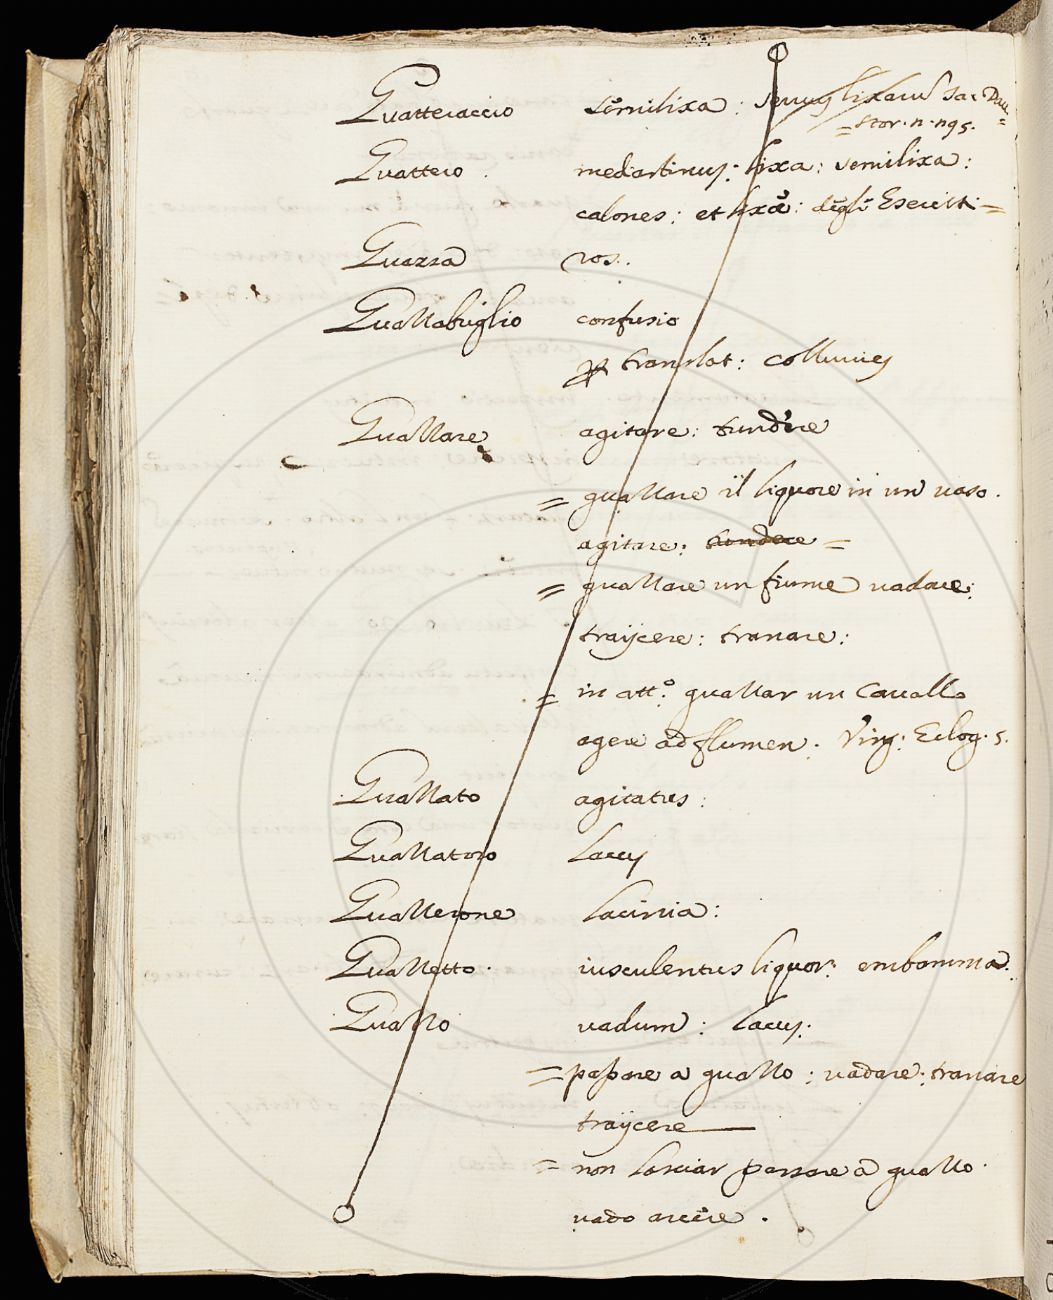 Guatteraccio semilixa: servus lixarum
Stor. n. 195.
Guattero mediastinus: lixa: semilixa:
calones: et lixæ: degli Eserciti
Guazza ros.
Guazzabuglio confusio
translat: colluvies
Guazzare agitare: tundere
= guazzare il liquore in un vaso.
agitare: tundere =
= guazzare un fiume vadare:
traijcere: tranare:
= in att.º guazzar un Cavallo
agere ad flumen. Virg: Eclog. 5.
Guazzato agitatus:
Guazzatoio Lacus
Guazzerone Lacinia:
Guazzetto. iusculentus liquor: embamma.
Guazzo vadum: Lacus.
= passare a guazzo: vadare: tranare
traijcere
= non lasciar passare a guazzo.
vado arcere.